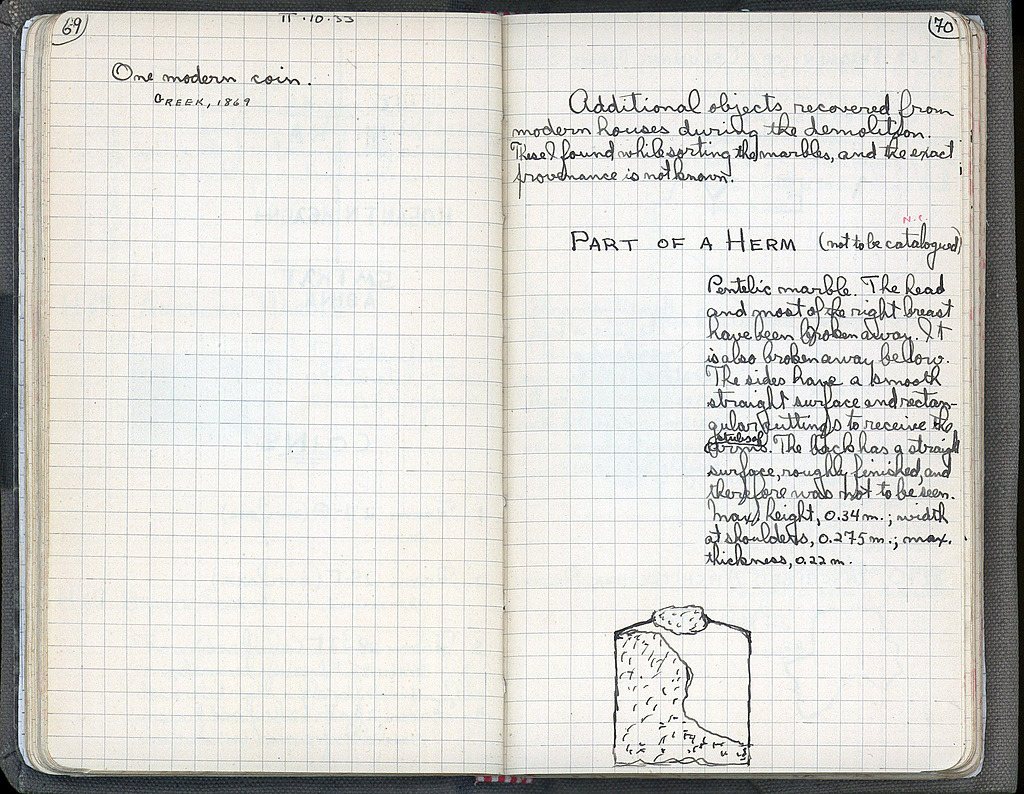 69
II·10·33
One modern coin.
GREEK, 1869
70
Additional objects recovered from
modern houses during the demolition.
These I found while sorting the marbles, and the exact
provenance is not known.
N.C.
PART OF A HERM (not to be catalogued)
Pentelic marble. The head
and most of the right breast
have been broken away. It
is also broken away below.
The sides have a smooth
straight surface and rectan-
gular cuttings to receive the
stubs of
arms. The back has a straight
surface, roughly finished, and
therefore was not to be seen.
Max. height, 0.34 m.; width
at shoulders, 0.275 m.; max.
thickness, 0.22 m.